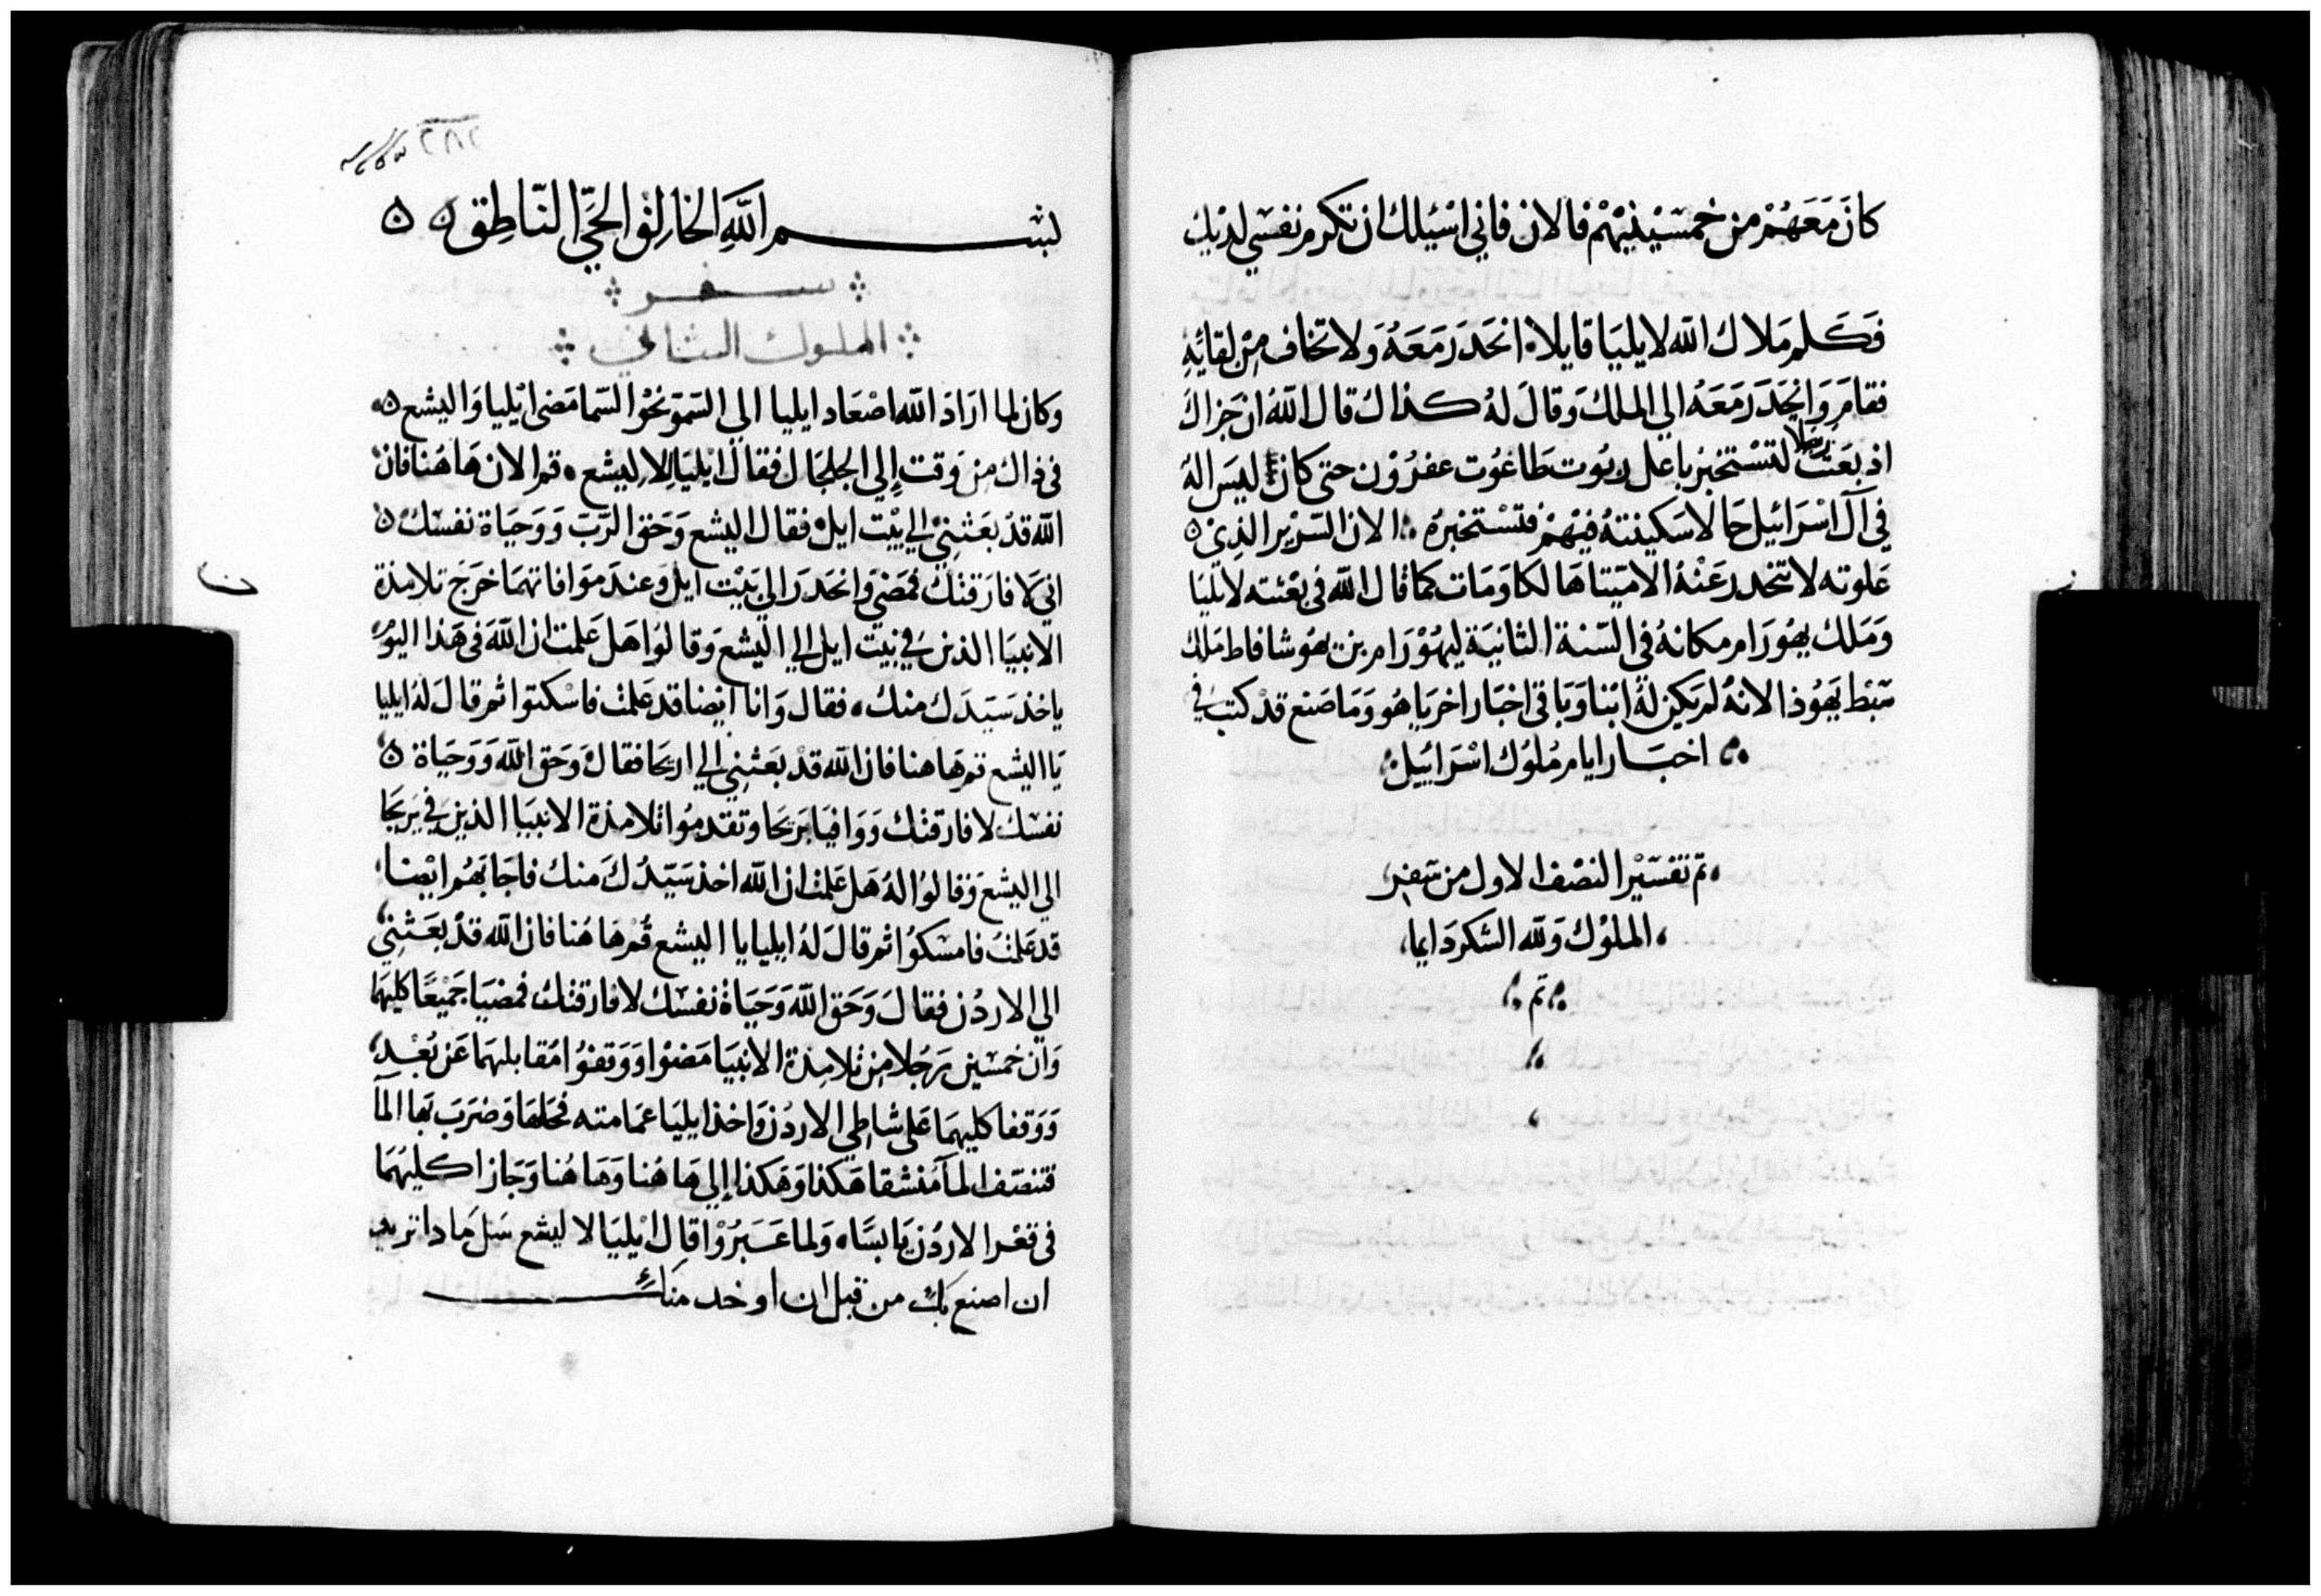 كانَ مَعَهُمْ من خمسْيْنيْهمْ فالان فاني اسْئيلك ان تكرم نفسَي لديك
فَكَلم مَلاك الله لايليَا قايلا انحَدَر مَعَهُ وَلا تخاف مِنْ لقائهِ
فقامَ وَانحَدَرَ مَعَهُ الي الملك وَقالَ لهُ كذاك قال اللهُ ان جزاك
اذ بعَثت رسلا لتسْتخبر باعل ربُوت طاغوُت عفرُوْن حتى كان ليسَ اله
في آل اسْرَائيل حَالا سَكينتهُ فيْهمْ فتسْتخبرهُ الان السَريْر الذِي
عَلوته لا تنحدر عَنهُ الا ميّتا هَالكا وَمَات كما قال الله في بعْثته لايليَا
وَمَلك يهُورَام مكانهُ في السّنة الثانيَة ليهُوْرَام بن يهُوشافاط مَلك
سَبط يَهوُذا لانهُ لم يَكن لهُ ابنا وَبَاقي اخبَار اخريَاهُو وَمَا صَنع قدْ كتبَ في
اخبَار ايام مُلوُك اسْرَائيل
تم تفسَيْر النصْف الاول من سَفر
الملوُك وَلله الشكر دَايما
تم
٢٨٢
بسم اللهِ الخالِق الحَيّ النّاطِق
سفر
الملوك الثاني
وكان لما ارَادَ الله اصْعَاد ايليا الي السّموّ نحْوَ السّما مَضى ايْليا وَاليشع
في ذاك مِن وَقت إلي الجلجَال فقالَ ايْليَا لاليشع قم الان هَاهُنا فان
الله قدْ بعَثنِيْ إلي بيْت ايل فقال اليشع وَحَق الرّبّ وَوَحيَاة نفسَك
اني لا فارَقتك فمَضيَ وَانحَدَرَا الي بَيْت ايل وَعندَ مَوَافاتهمَا خرَجَ تلامذة
الانبيَا الذينَ في بيْت ايل إلي اليْشع وَقالوُا هَل عَلمت ان اللهَ في هَذا اليوْم
ياخذ سَيّدَك منك فقال وَانا ايْضا قد عَلمْت فاسْكتوا ثم قالَ لهُ ايليا
يَا اليشع قم هَاهنا فان الله قدْ بعَثنِي إلي اريحَا فقال وَحَق الله وَوَحيَاة
نفسَك لا فارقتك وَوَافيَا يَريحَا وتقدموُا تلامذة الانبيَا الذينَ في يَريحَا
الي اليشع وَقالوُا لهُ هَل عَلمْت ان الله اخذ سَيّدَك منك فاجَابَهُم ايْضا
قد عَلمْت فامسَكوُا ثم قالَ لهُ ايليا يا اليشع قُمْ هَاهُنا فان الله قدْ بعَثنِي
الي الاردُن فقالَ وَحَق الله وَحَيَاة نفسَك لا فارقتك فمضيَا جَميْعًا كليهمَا
وَان خمسَين رَجُلا مِن تلامِذة الانبيَا مَضوْا وَوَقفوُا مُقابلهمَا عَن بُعْدٍ
وَوَقفا كليهمَا عَلى شاطي الاردُن وَاخذ ايليَا عمَامته فحَلهَا وَضرَبَ بهَا المآ
فتنصّف المآ مُنشقا هَكذا وَهَكذا إلي هَاهُنا وَهَاهُنا وَجَازا كليهُمَا
في قعْر الاردُن يَابسًا وَلما عَبَرُوْا قال ايْليَا لاليشع سَل مَاذا تريد
ان اصنع بك من قبل ان اوخد منك